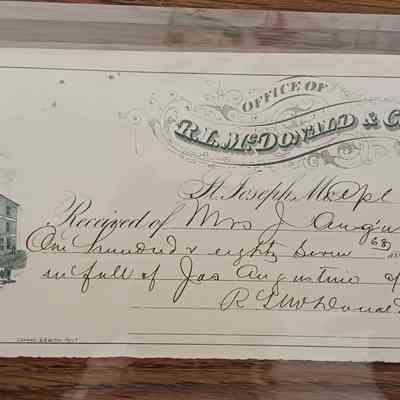 OFFICE OF
R.L. McDONALD & C
St. Joseph, Mo. Sept
Received of Mrs J Augu
One hundred & eighty seven 68
in full of Jas Augustine
R L McDonald